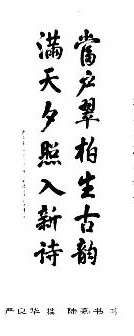 當户翠柏生古韵
滿天夕照入新诗
严良华 撰 陆家书 书